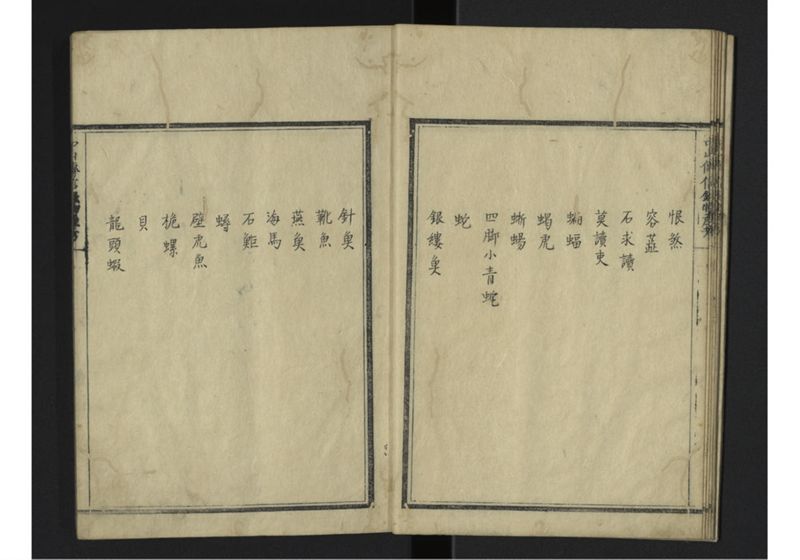 恨煞
容蕋
石求讀
莫讀史
蝙蝠
蝎虎
蜥蜴
四脚小青蛇
蛇
銀縷魚
針魚
靴魚
燕魚
海馬
石鉅
蟳
壁虎魚
桅螺
貝
龍頭蝦